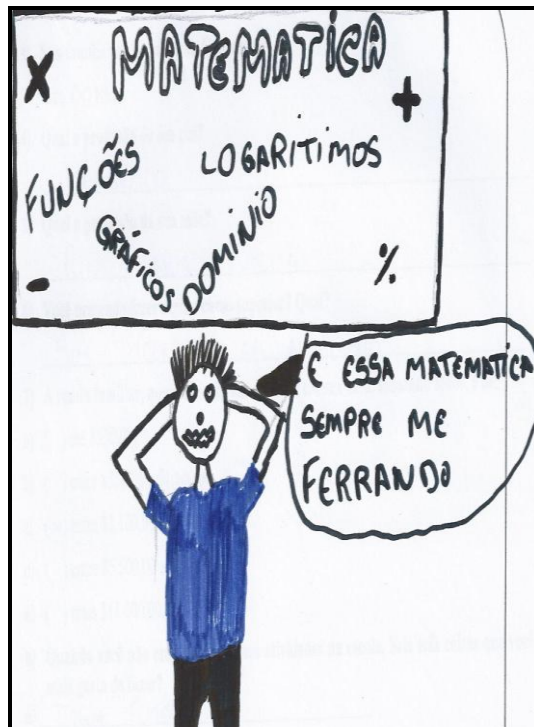 MATEMATICA
x
+
FUNÇÕES
LOGARITIMOS
GRÁFICOS
DOMINIO
-
%
E ESSA MATEMATICA
SEMPRE ME
FERRANDO